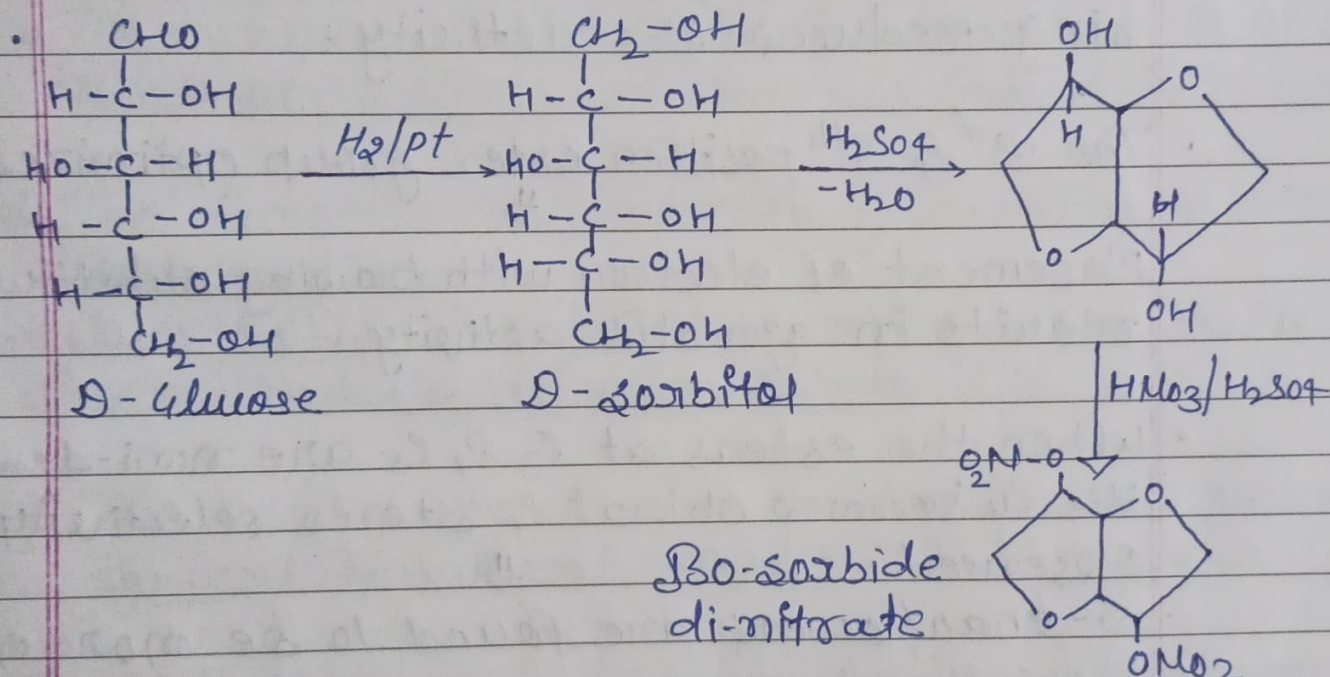 CHO
H-C-OH
HO-C-H
H-C-OH
H-C-OH
CH2-OH
D-Glucose
H2/pt
CH2-OH
H-C-OH
HO-C-H
H-C-OH
H-C-OH
CH2-OH
D-sorbitol
H2SO4
-H2O
OH
O
H
H
O
OH
HNO3/H2SO4
O2N-O
O
Iso-sorbide
di-nitrate
O
ONO2